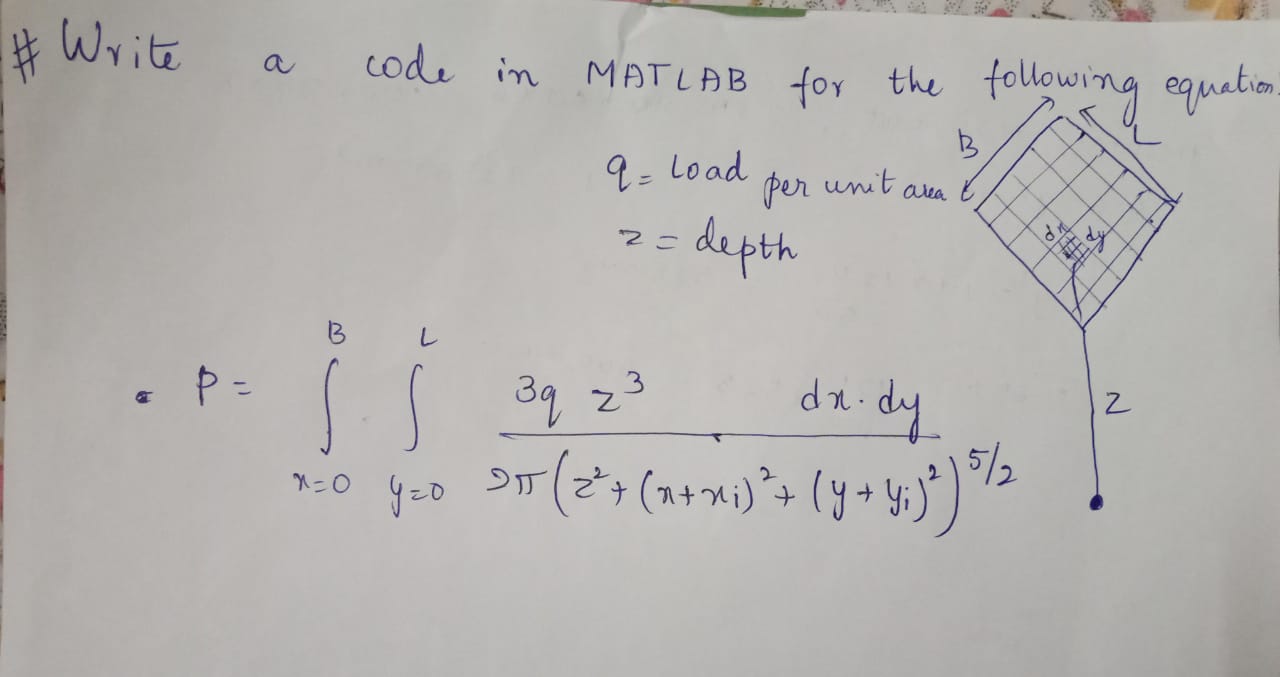 # Write a code in MATLAB for the following equation.
B L
q = Load per unit area
z = depth
dx dy
P = ∫_{x=0}^{B} ∫_{y=0}^{L} 3q z^3 dx·dy / 2π(z^2 + (x+xi)^2 + (y+yi)^2)^{5/2}
z